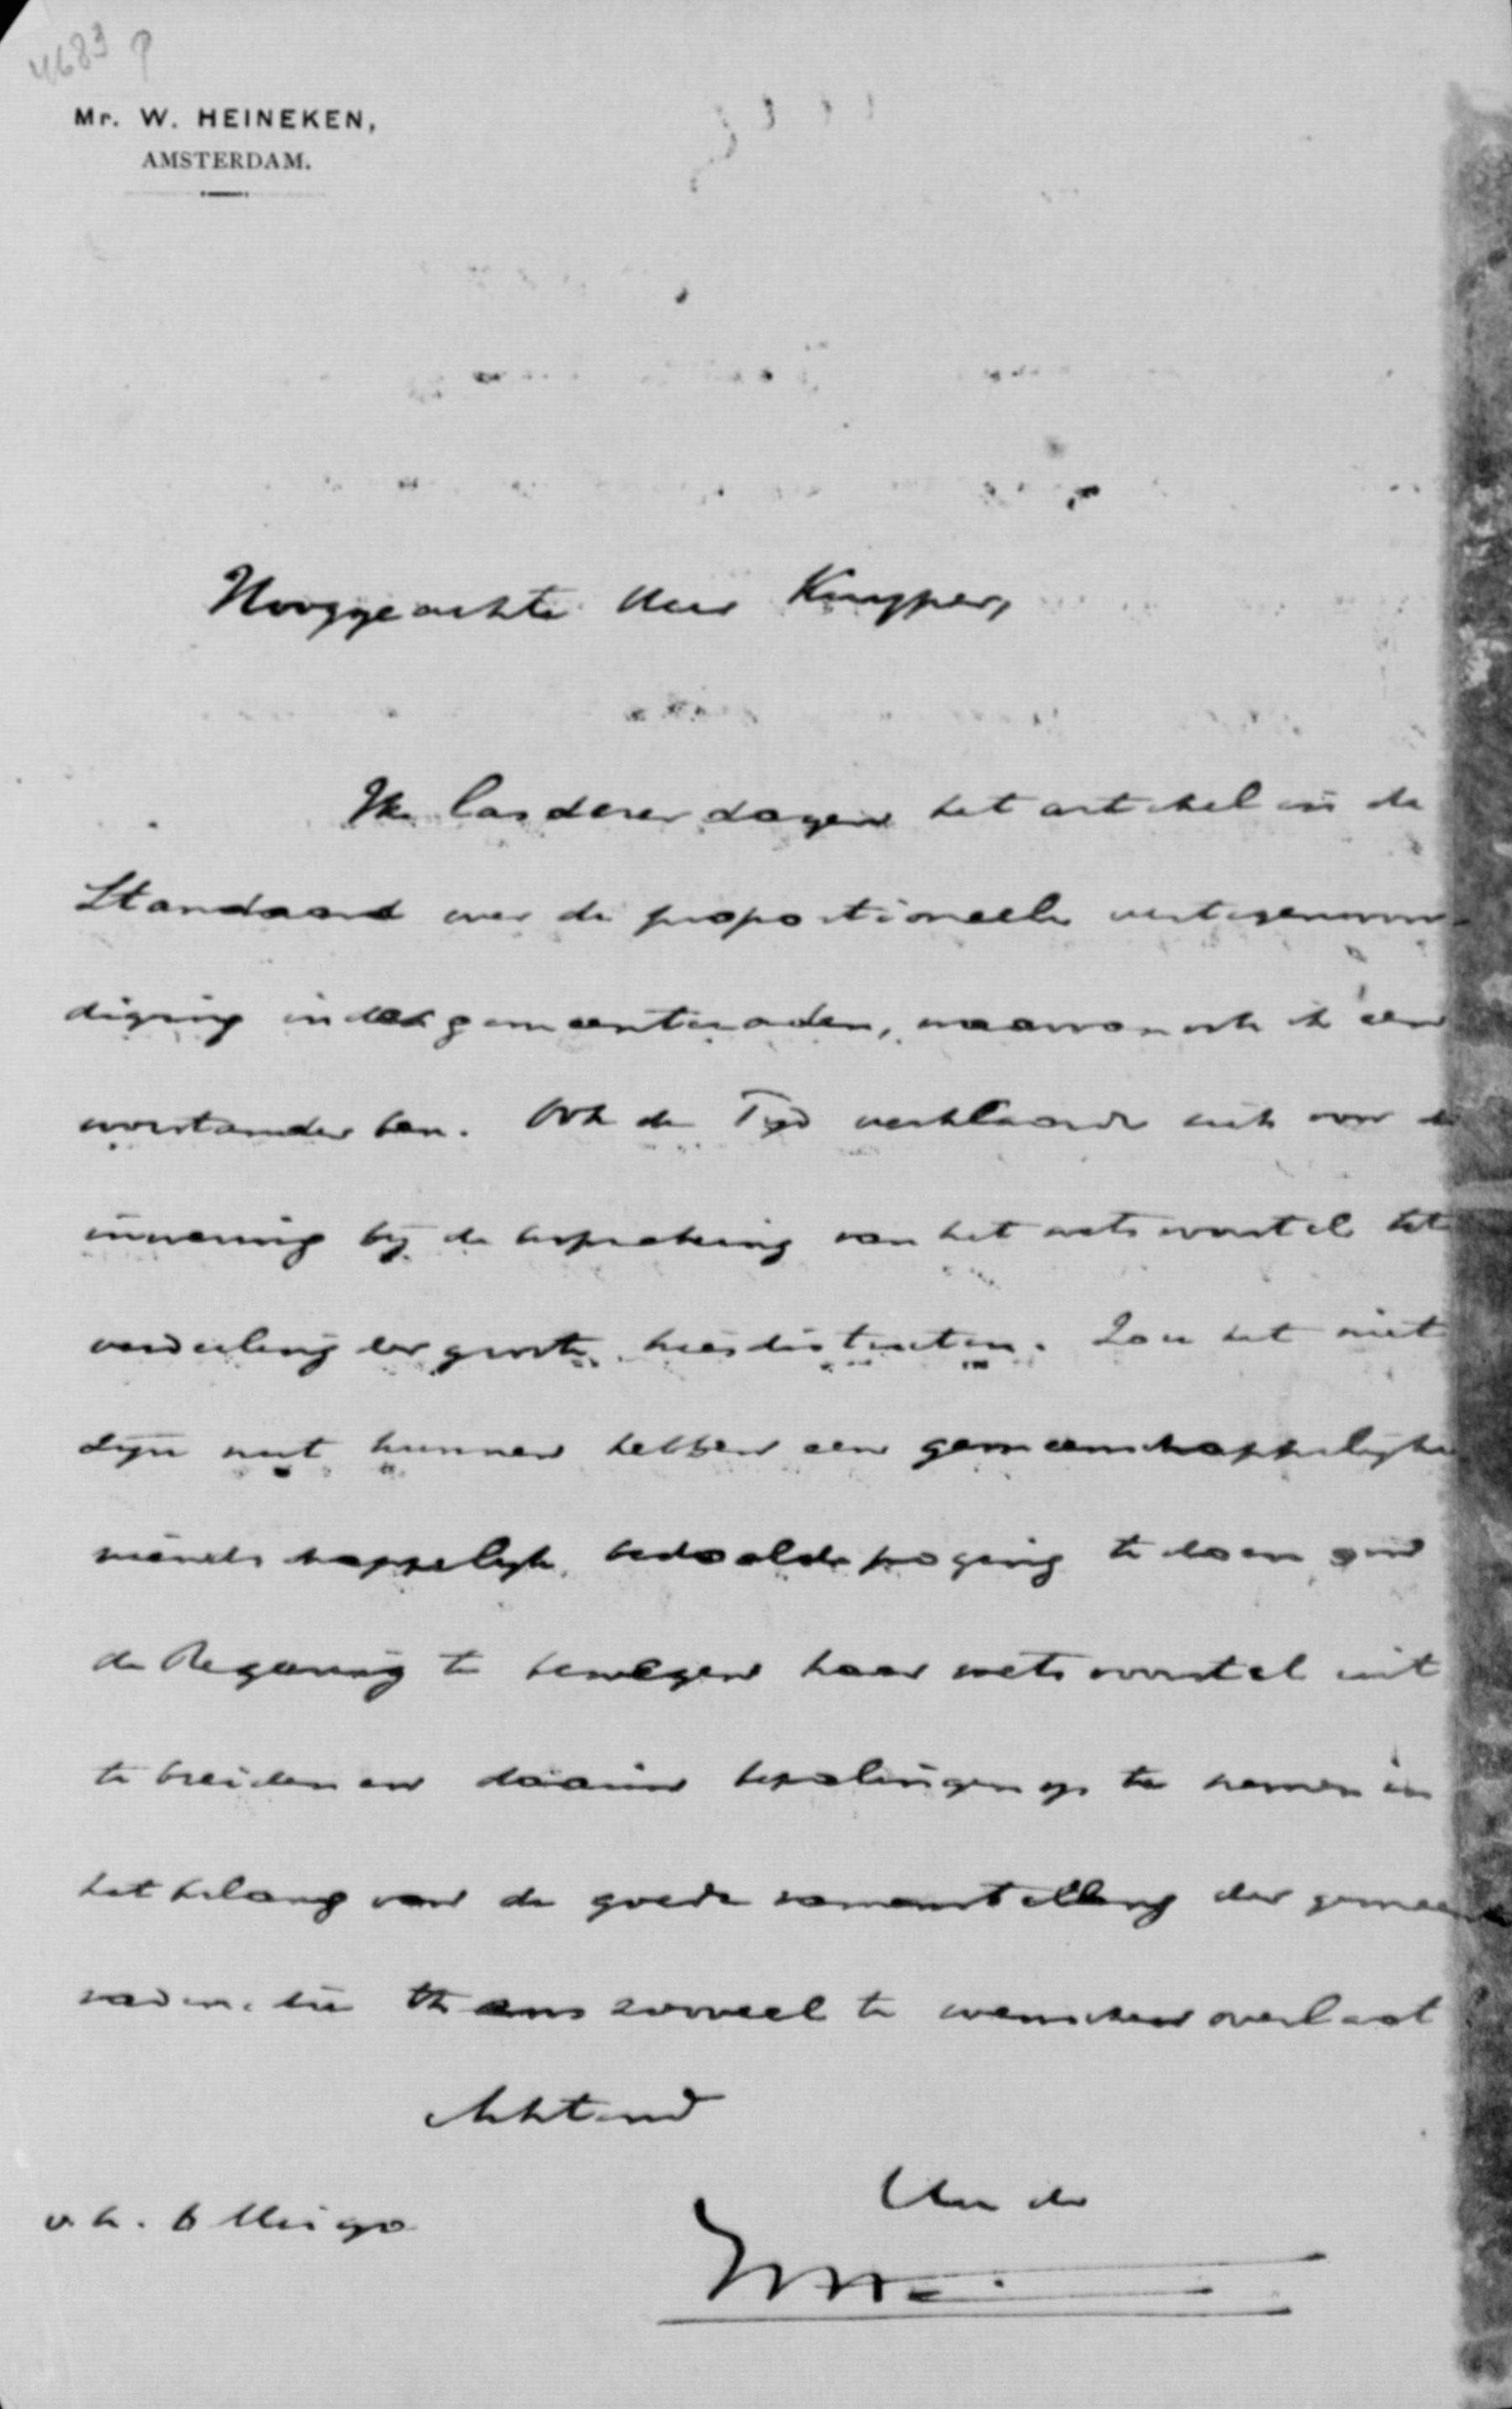 4683
Mr. W. HEINEKEN,
AMSTERDAM.
Hooggeachte Heer Kuyper,
Ik las dezer dagen het artikel in de
Standaard over de proportioneele vertegenwoor-
diging in de gemeenteraden, waarvan ook ik een
voorstander ben. Ook de Tijd verklaarde zich voor de
invoering bij de bespreking van het wetsvoorstel tot
verdeeling der groote kiesdistricten. Zou het niet
zijn nut kunnen hebben een gemeenschappelijke
bedoelde poging te doen om
de Regering te bewegen haar wetsvoorstel uit
te breiden en daarin bepalingen op te nemen in
het belang van de goede samenstelling der gemeente
raden, die thans zooveel te wenschen overlaat
Achtend
Uw dw
v. h. 6 Mei 90